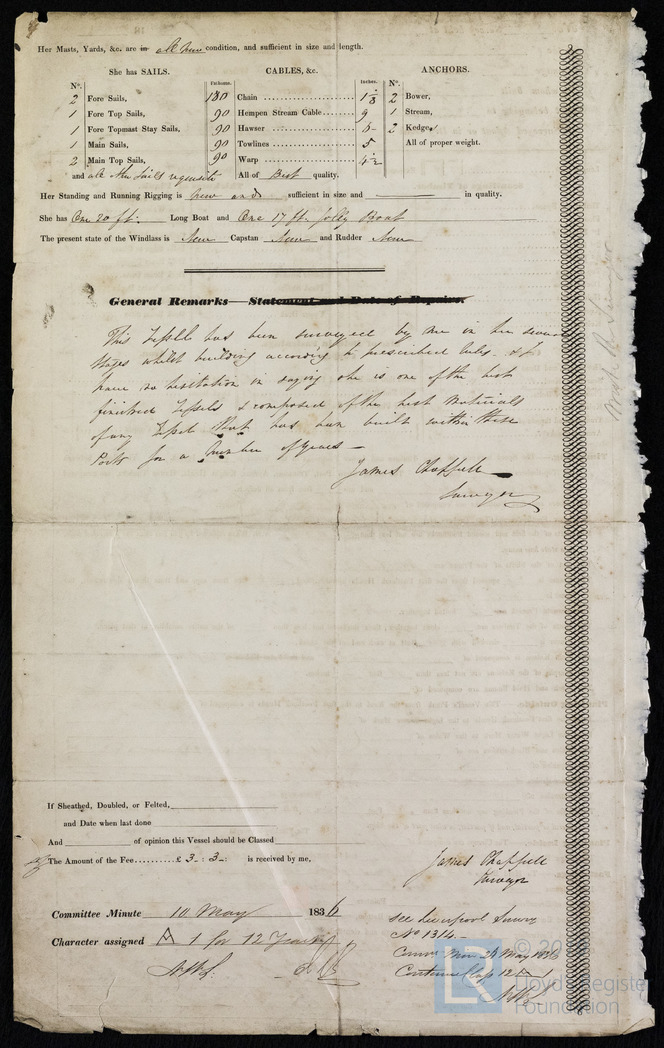 Her Masts, Yards, &c. are in all new condition, and sufficient in size and length.
She has SAILS. CABLES, &c. ANCHORS.
N°. Fathoms. Inches. N°.
2 Fore Sails, 180 Chain 1 1/8 2 Bower,
1 Fore Top Sails, 90 Hempen Stream Cable 9 1 Stream,
1 Fore Topmast Stay Sails, 90 Hawser 6 2 Kedge,
1 Main Sails, 90 Towlines 5 All of proper weight.
2 Main Top Sails, 90 Warp 4 1/2
and all other Sails requisite All of Best quality.
Her Standing and Running Rigging is new and sufficient in size and in quality.
She has One 20 ft. Long Boat and One 17 ft. Jolly Boat
The present state of the Windlass is New Capstan New and Rudder New
General Remarks—Statement and Date of Repairs.
This Vessell has been surveyed by me in her several
stages whilst building according to prescribed rules. & I
have no hesitation in saying she is one of the best
finished Vessels & composed of the best Materials
of any Vessel that has been built within these
Ports for a Number of Years—
James Chappell
Surveyor
If Sheathed, Doubled, or Felted,
and Date when last done
And of opinion this Vessel should be Classed
The Amount of the Fee..........£ 3 : 3 : is received by me,
James Chappell
Surveyor
Committee Minute 10 May 1836
Character assigned A 1 for 12 Years
see Liverpool Survey
N° 1314
24 May 1836
Continue Class 12 A 1
© 20
Lloyd's Register
Foundation